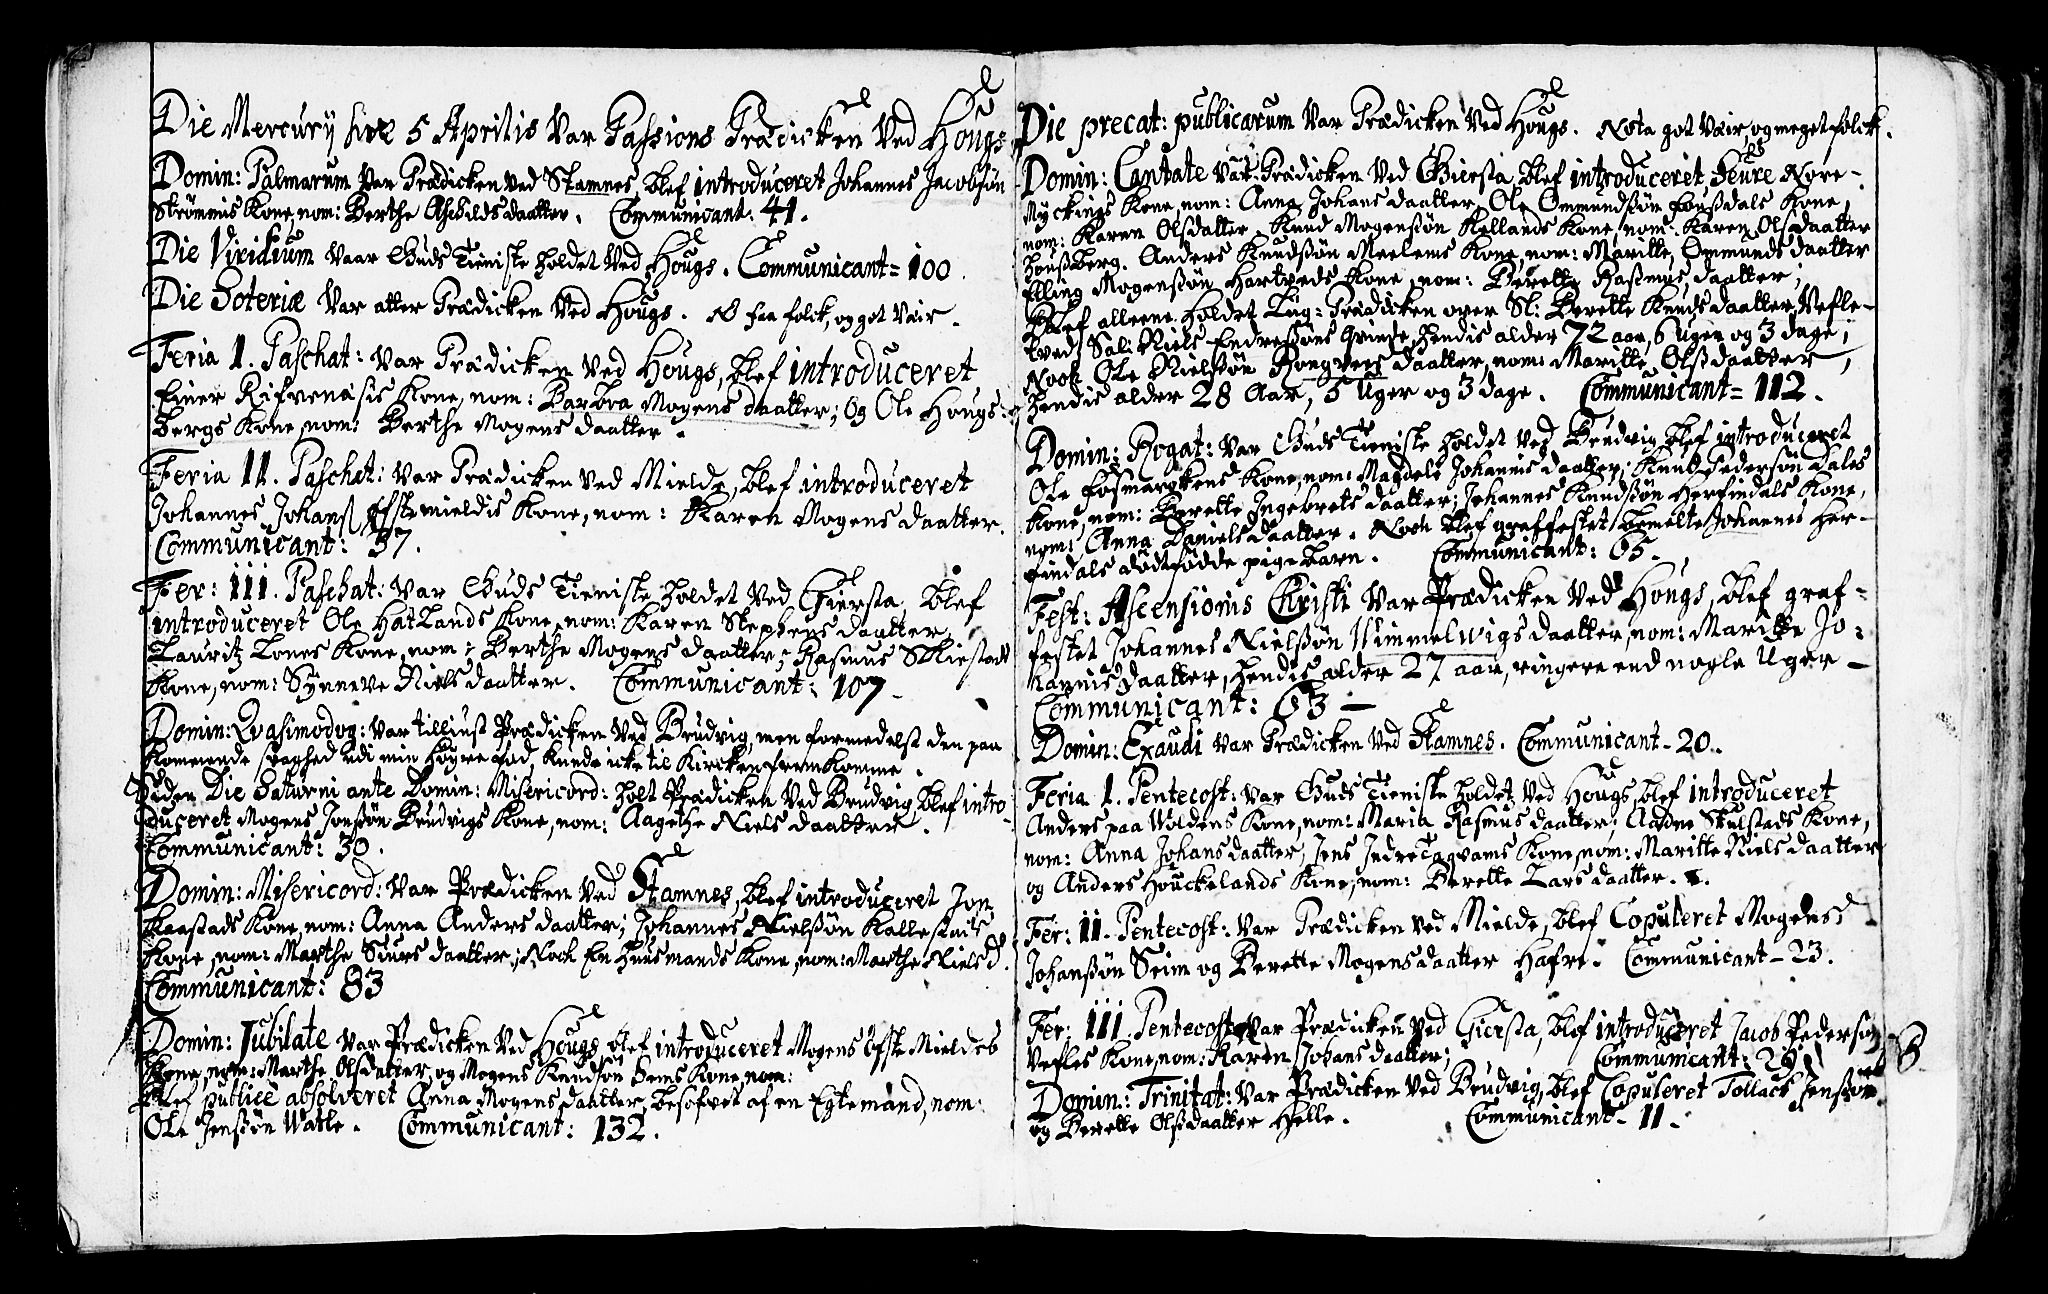 Die Mercurij sive 5 Aprilis Var Passions Prædicken Ved Hougs
Domin: Palmarum Var Prædicken ved Stamnes, blef introduceret Johannes Jacobsøn
Strømmis Kone, nom: Berthe Aschilds daatter. Communicant: 41.
Die Viridium Vaar Guds Tieniste holdet Ved Hougs. Communicant= 100.
Die Soteriæ Var atter Prædicken Ved Hougs. NB faa folck, og got Vair.
Feria 1. Paschat: Var Prædicken Ved Hougs, blef introduceret
Einer Rifvenæsis Kone, nom: Barbra Mogens daatter; og Ole Hougs:
bergs Kone, nom: Berthe Mogens daatter.
Feria II. Paschat: Var Prædicken ved Mielde, blef introduceret
Johannes Johanß Øfstemieldis Kone, nom: Karen Mogens daatter.
Communicant: 37.
Fer: III. Paschat: Var Guds Tieniste holdet Ved Giersta, blef
introduceret Ole Hatlands Kone, nom: Karen Stephens daatter,
Lauritz Lones Kone, nom: Berthe Mogens daatter; Rasmus Skiestads
Kone, nom: Synneve Niels daatter. Communicant: 107.
Domin: Qvasimodog: var tilliust Prædicken Ved Brudvig, men formedelst den paa
kommende svaghed udi min høyre fod, kunde icke til Kircken fremkomme.
Siden Die Saturni ante Domin: Misericord: holt Prædicken Ved Brudvig, blef intro-
duceret Mogens Jonßøn Brudvigs Kone, nom: Aagethe Niels daatter.
Communicant: 30.
Domin: Misericord: Var Prædicken Ved Stamnes, blef introduceret Jon
Kaastads Kone, nom: Anna Anders daatter; Johannes Nielßøn Kallestads
Kone, nom: Marthe Siurs daatter; Noch En Huusmands Kone, nom: Marthe Niels d.
Communicant: 83
Domin: Jubilate Var Prædicken Ved Hougs, blef introduceret Mogens Øfste Mieldes
Kone, nom: Marthe Olsdatter, og Mogens Knudsøn Sems Kone, nom:
Blef publicè absolveret Anna Mogens daatter, besofvet af en Egtemand, nom:
Ole Jenßøn Watle. Communicant: 132.
Die precat: publicarum Var Prædicken Ved Hougs. Nota got Vair, og meget folck.
Domin: Cantate Var Prædicken Ved Giersta, blef introduceret Seure Nore-
Myckings Kone, nom: Anna Johans daatter, Ole Ommundßøn Foußdals Kone,
nom: Karen Olsdatter, Knud Mogenßøn Kellands Kone, nom: Karen Olsdaatter
Houßberg. Anders Knudßøn Meelems Kone, nom: Maritte Ommunds daatter
Elling Mogenßøn Hartveds Kone, nom: Berette Rasmus daatter;
Blef alleene holdet Liig: Prædicken over Sl: Berette Knuds daatter Vefle-
tved, Sal: Niels Endresßøns qvinde, hendis alder 72 aar, 6 uger og 3 dage;
Nock Ole Nielßøn Rongveds daatter, nom: Maritte Olsdaatter,
hendis alder 28 Aar, 5 Uger og 3 dage. Communicant= 112.
Domin: Rogat: Var Guds Tieniste holdet Ved Brudvig, blef introduceret
Ole Fosmarckens Kone, nom: Magdele Johannis daatter; Knud Pedersøn Dales
Kone, nom: Berette Ingebrets daatter; Johannes Knudßøn Herfindals Kone,
nom: Anna Daniels daatter. Noch blef graffestet bemelte Johannes Her-
findals dødfødde pigebarn. Communicant: 65.
Fest: Ascensionis Christi Var Prædicken Ved Hougs, blef graf-
festet Johannes Nielßøn Wimmelwigs daatter, nom: Maritte Jo-
hannis daatter, hendis alder 27 aar, ringere end nogle Uger
Communicant: 63
Domin: Exaudi Var Prædicken Ved Stamnes. Communicant- 20.
Feria 1. Pentecost: Var Guds Tieniste holdet Ved Hougs, blef introduceret
Anders paa Woldens Kone, nom: Maria Rasmus daatter; Aadne Skulstads Kone,
nom: Anna Johans daatter, Jens Indre Tagvams Kone, nom: Maritte Niels daatter
og Anders Houckelands Kone, nom: Berette Lars daatter.
Fer: II. Pentecost: Var Prædicken Ved Mielde, blef Copuleret Mogens
Johanßøn Seim og Berette Mogens daatter Hafre. Communicant- 23.
Fer: III. Pentecost: Var Prædicken Ved Giersta, blef introduceret Jacob Pedersøn
Vefles Kone, nom: Karen Johans daatter; Communicant: 29.
Domin: Trinitat: Var Prædicken Ved Brudvig, blef Copuleret Tollack Jensßøn
og Berette Olsdaatter Helle. Communicant- 11.
8.